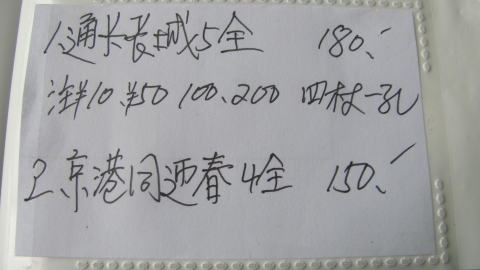 1、通卡长城5全 180.-
注:¥10、¥50 100、200 四枚一孔
2、京港同迎春4全 150.-